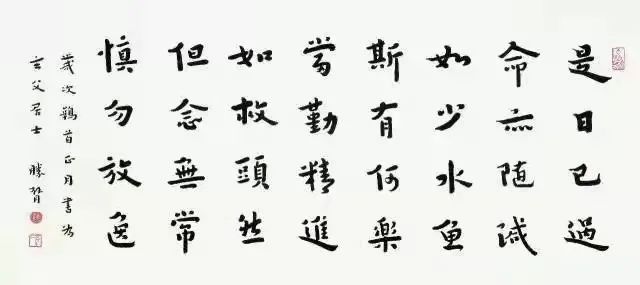 是日已過
命亦随減
如少水魚
斯有何樂
當勤精進
如救頭然
但念無常
慎勿放逸
歲次鶉首正月書為
玄父居士